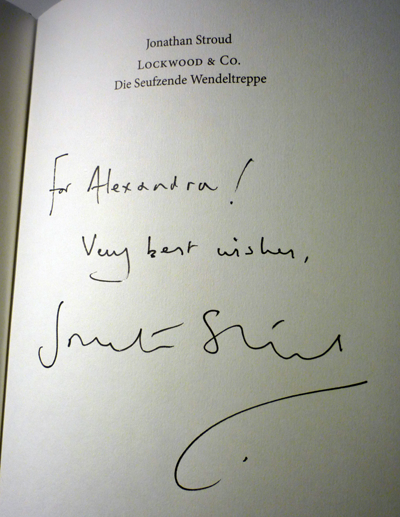 Jonathan Stroud
LOCKWOOD & CO.
Die Seufzende Wendeltreppe
For Alexandra!
Very best wishes,
Jonathan Stroud